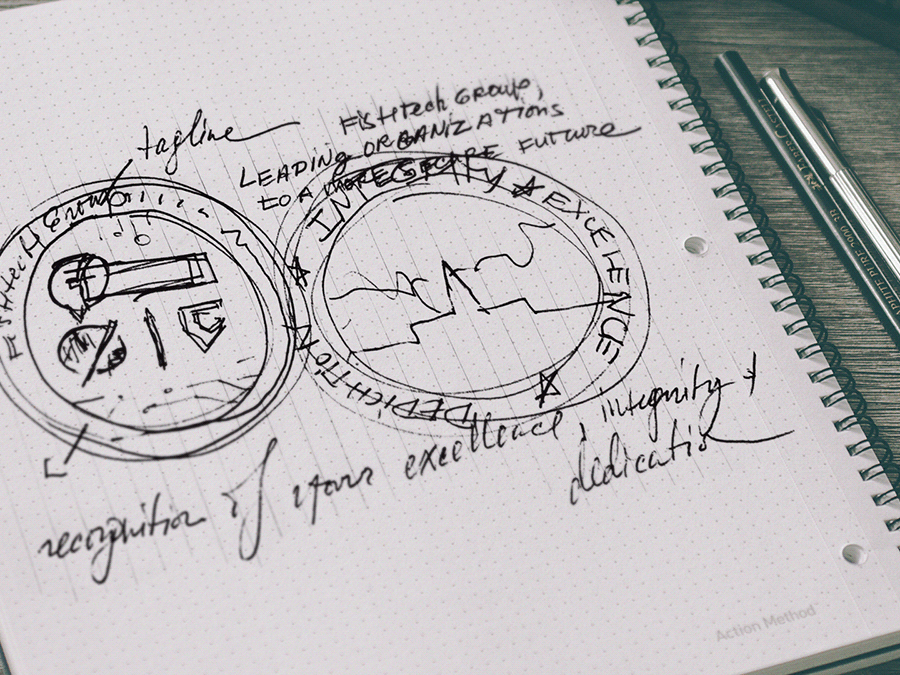 tagline
FisHtech GROUP,
LEADING ORGANIZATIONS
to A MORE SECURE FUTURE
FisHtech Group
INTEGRITY ☆ EXCELLENCE ☆ DEDICATION ☆
recognition of your excellence, integrity &
dedication
Action Method